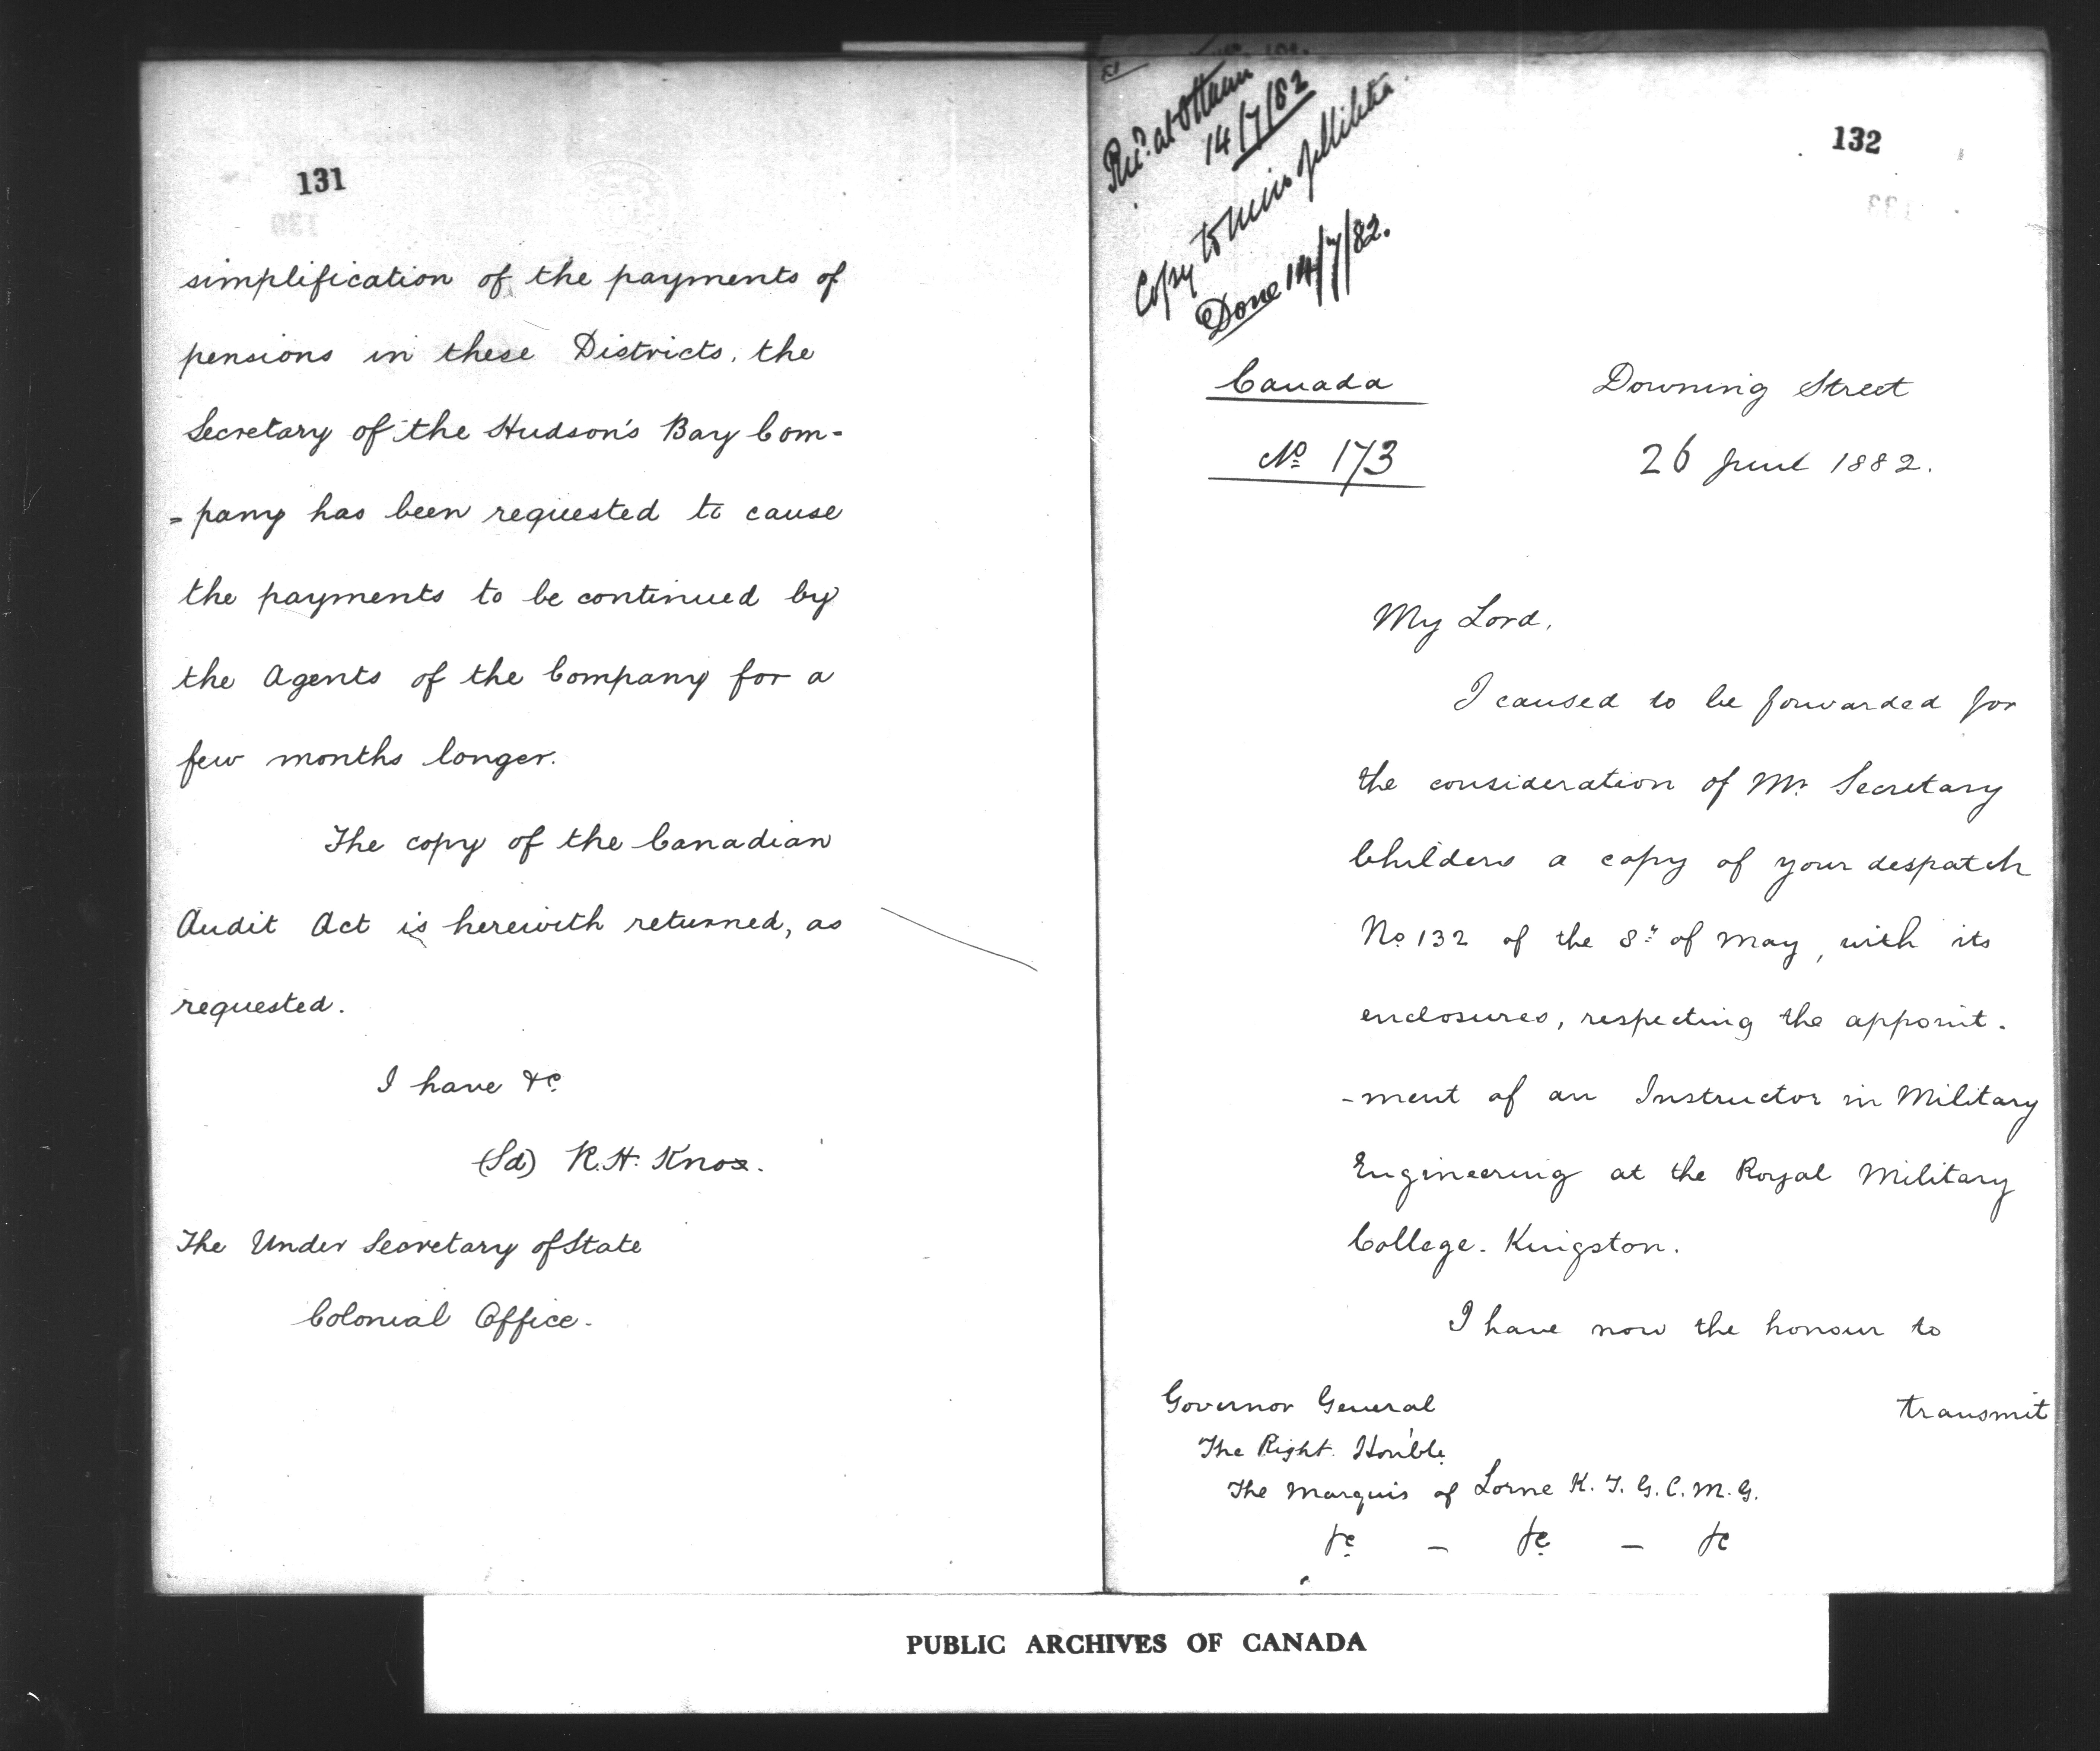 131
simplification of the payments of
pensions in these Districts, the
Secretary of the Hudson's Bay Com-
=pany has been requested to cause
the payments to be continued by
the Agents of the Company for a
few months longer.
The copy of the Canadian
Audit Act is herewith returned, as
requested.
I have &c
(Sd) R. H. Knox.
The Under Secretary of State
Colonial Office.
132
Recd. at Ottawa
14/7/82
Copy to Min of Militia
Done 14/7/82.
Canada
No 173
Downing Street
26 June 1882.
My Lord,
I caused to be forwarded for
the consideration of Mr Secretary
Childers a copy of your despatch
No 132 of the 8th of May, with its
enclosures, respecting the appoint.
-ment of an Instructor in Military
Engineering at the Royal Military
College. Kingston.
I have now the honour to
transmit
Governor General
The Right Hon'ble
The Marquis of Lorne K. T. G. C. M. G.
&c – &c – &c
PUBLIC ARCHIVES OF CANADA